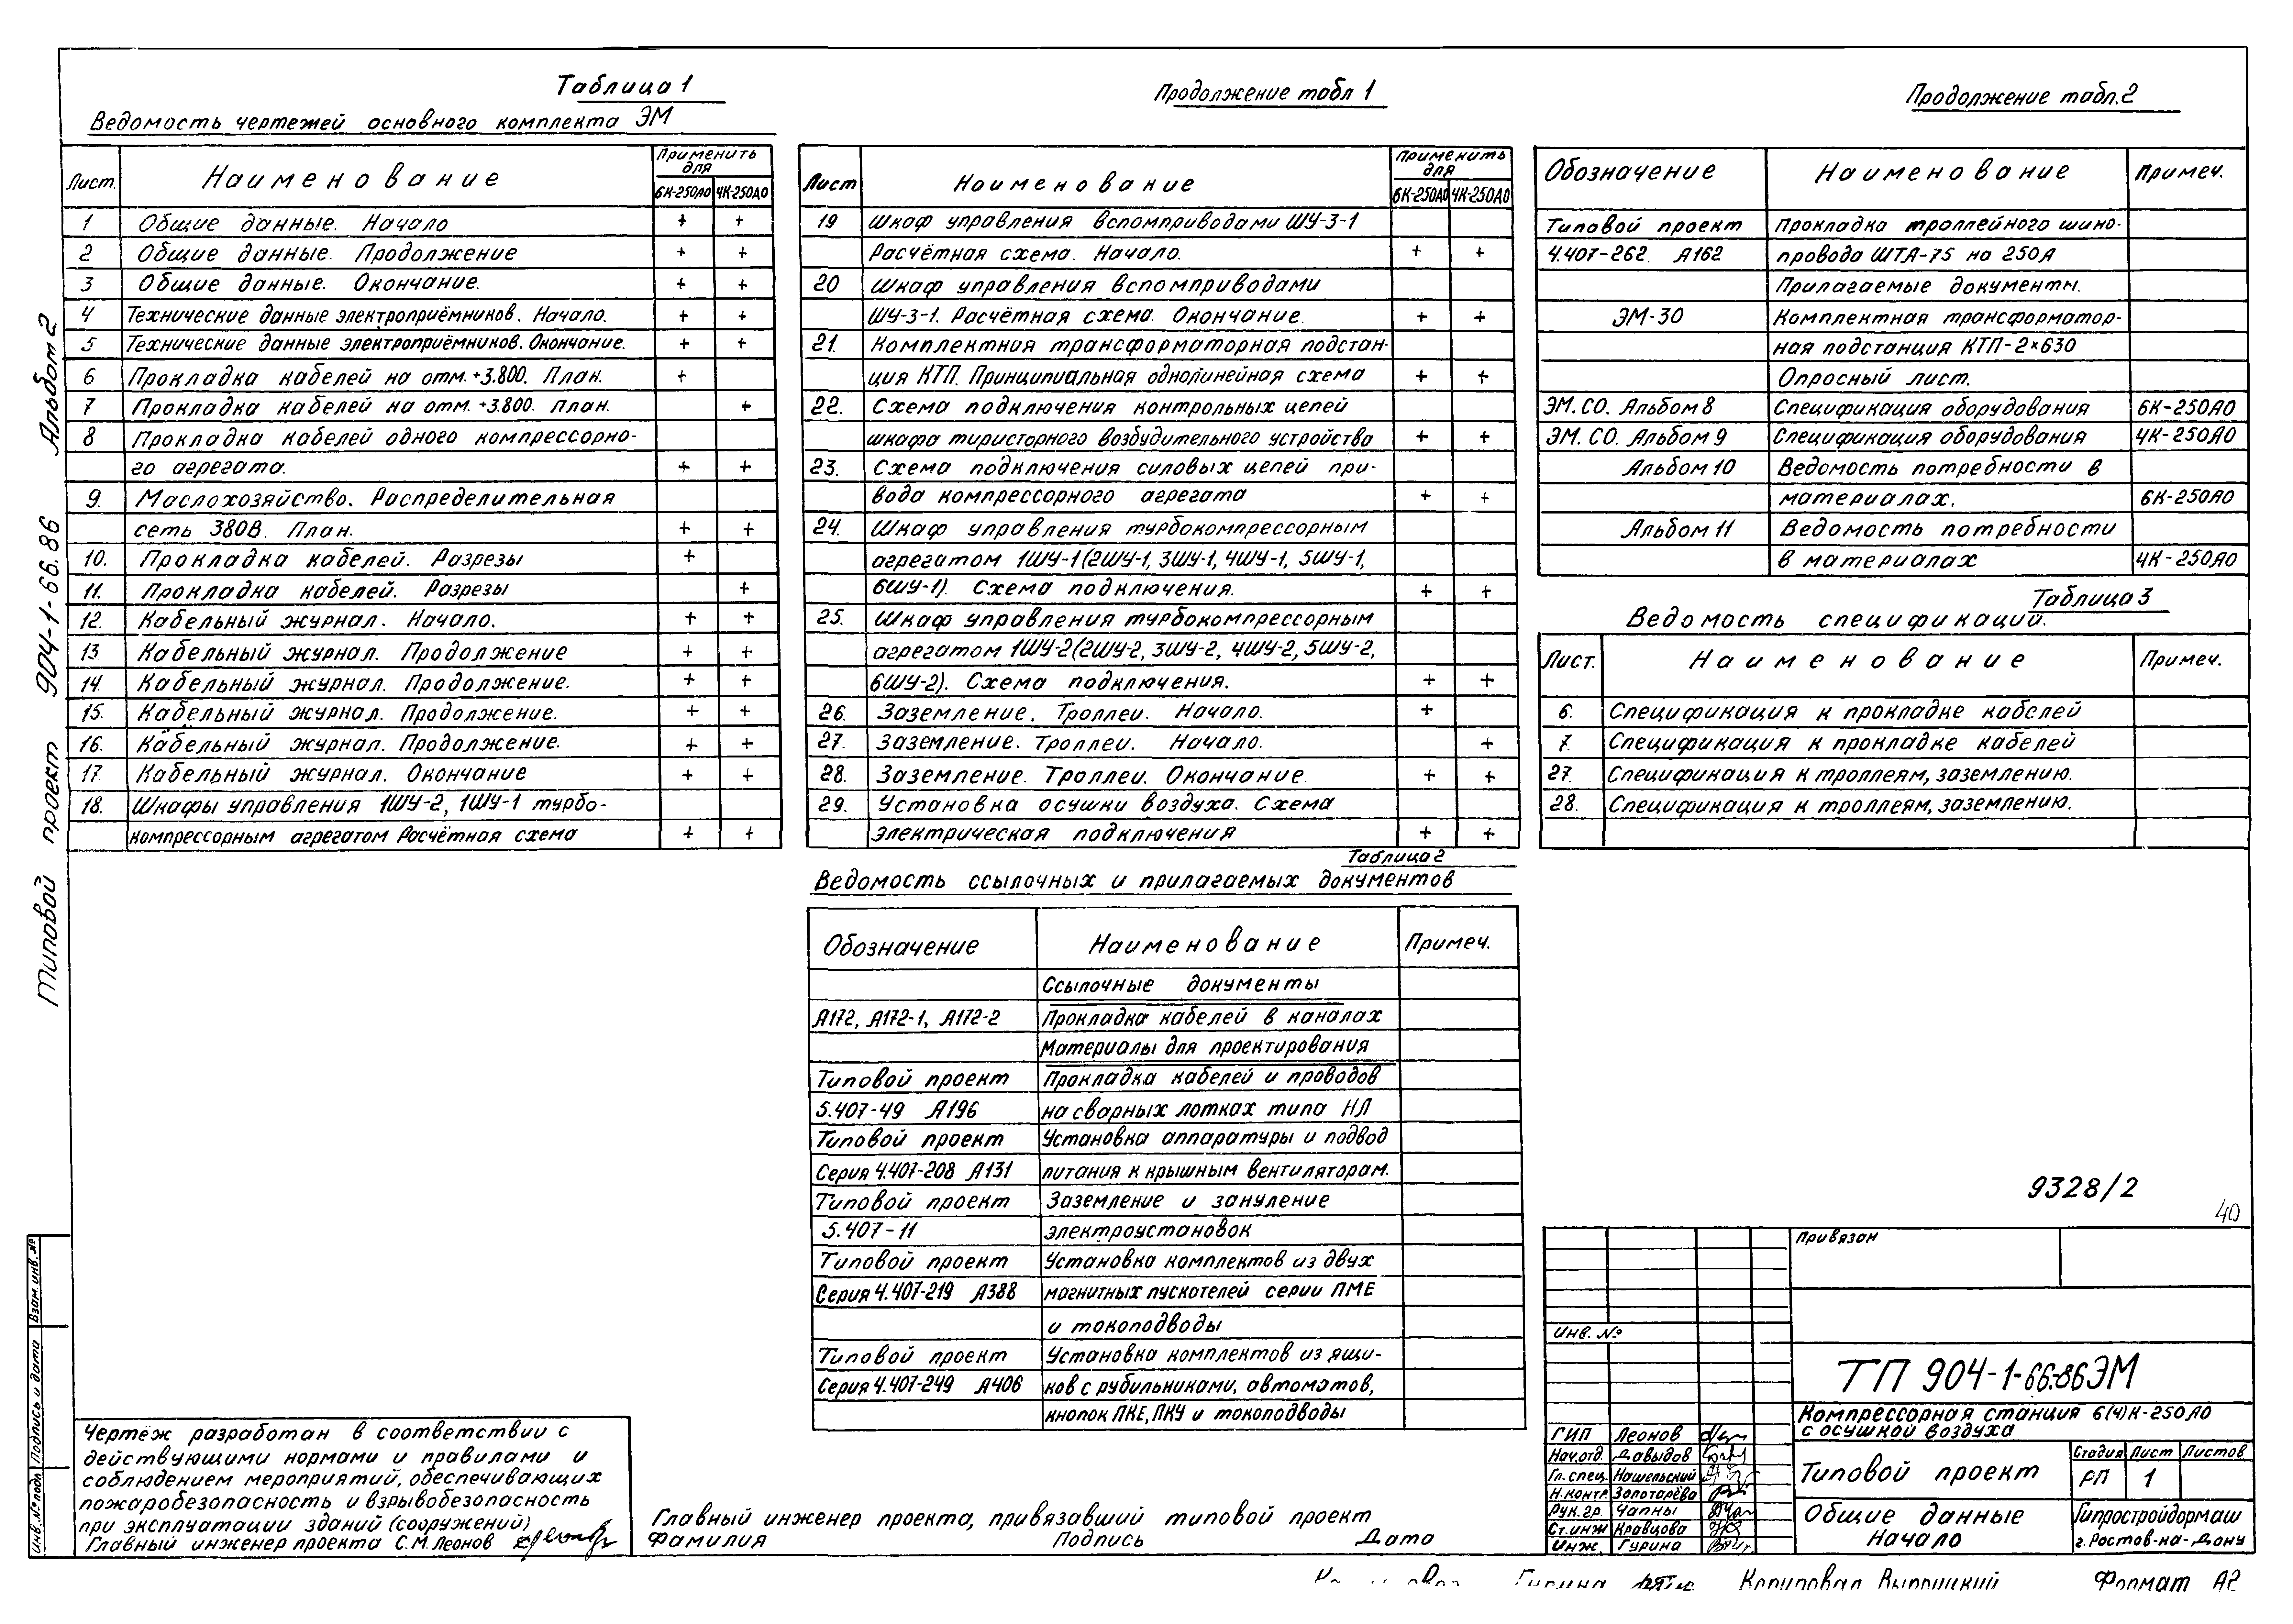 Таблица 1
Ведомость чертежей основного комплекта ЭМ
Лист. Наименование Применить для
6К-250АО 4К-250АО
1 Общие данные. Начало + +
2 Общие данные. Продолжение + +
3 Общие данные. Окончание. + +
4 Технические данные электроприёмников. Начало. + +
5 Технические данные электроприёмников. Окончание. + +
6 Прокладка кабелей на отм. +3.800. План. +
7 Прокладка кабелей на отм. +3.800. План. +
8 Прокладка кабелей одного компрессорно-
го агрегата. + +
9. Маслохозяйство. Распределительная
сеть 380В. План. + +
10. Прокладка кабелей. Разрезы +
11. Прокладка кабелей. Разрезы +
12. Кабельный журнал. Начало. + +
13. Кабельный журнал. Продолжение + +
14. Кабельный журнал. Продолжение. + +
15. Кабельный журнал. Продолжение. + +
16. Кабельный журнал. Продолжение. + +
17. Кабельный журнал. Окончание + +
18. Шкафы управления 1ШУ-2, 1ШУ-1 турбо-
компрессорным агрегатом Расчётная схема + +
Продолжение табл 1
Лист Наименование Применить для
6К-250АО 4К-250АО
19 Шкаф управления вспомприводами ШУ-3-1
Расчётная схема. Начало. + +
20 Шкаф управления вспомприводами
ШУ-3-1. Расчётная схема. Окончание. + +
21. Комплектная трансформаторная подстан-
ция КТП. Принципиальная однолинейная схема + +
22. Схема подключения контрольных цепей
шкафа тиристорного возбудительного устройства + +
23. Схема подключения силовых цепей при-
вода компрессорного агрегата + +
24. Шкаф управления турбокомпрессорным
агрегатом 1ШУ-1 (2ШУ-1, 3ШУ-1, 4ШУ-1, 5ШУ-1,
6ШУ-1). Схема подключения. + +
25. Шкаф управления турбокомпрессорным
агрегатом 1ШУ-2 (2ШУ-2, 3ШУ-2, 4ШУ-2, 5ШУ-2,
6ШУ-2). Схема подключения. + +
26. Заземление. Троллеи. Начало. +
27. Заземление. Троллеи. Начало. +
28. Заземление. Троллеи. Окончание. + +
29. Установка осушки воздуха. Схема
электрическая подключения + +
Таблица 2
Ведомость ссылочных и прилагаемых документов
Обозначение Наименование Примеч.
Ссылочные документы
А172, А172-1, А172-2 Прокладка кабелей в каналах
Материалы для проектирования
Типовой проект Прокладка кабелей и проводов
5.407-49 А196 на сварных лотках типа НЛ
Типовой проект Установка аппаратуры и подвод
Серия 4.407-208 А131 питания к крышным вентиляторам.
Типовой проект Заземление и зануление
5.407-11 электроустановок
Типовой проект Установка комплектов из двух
Серия 4.407-219 А388 магнитных пускателей серии ПМЕ
и токоподводы
Типовой проект Установка комплектов из ящи-
Серия 4.407-249 А406 ков с рубильниками, автоматов,
кнопок ПКЕ, ПКУ и токоподводы
Продолжение табл. 2
Обозначение Наименование Примеч.
Типовой проект Прокладка троллейного шино-
4.407-262. А162 провода ШТА-75 на 250А
Прилагаемые документы.
ЭМ-30 Комплектная трансформатор-
ная подстанция КТП-2×630
Опросный лист.
ЭМ.СО. Альбом 8 Спецификация оборудования 6К-250АО
ЭМ.СО. Альбом 9 Спецификация оборудования 4К-250АО
Альбом 10 Ведомость потребности в
материалах. 6К-250АО
Альбом 11 Ведомость потребности
в материалах 4К-250АО
Таблица 3
Ведомость спецификаций.
Лист. Наименование Примеч.
6. Спецификация к прокладке кабелей
7. Спецификация к прокладке кабелей
27. Спецификация к троллеям, заземлению.
28. Спецификация к троллеям, заземлению.
Типовой проект 904-1-66.86 Альбом 2
Инв. № подл Подпись и дата Взам. инв. №
Чертёж разработан в соответствии с
действующими нормами и правилами и
соблюдением мероприятий, обеспечивающих
пожаробезопасность и взрывобезопасность
при эксплуатации зданий (сооружений)
Главный инженер проекта С.М. Леонов
Главный инженер проекта, привязавший типовой проект
Фамилия Подпись Дата
9328/2
40
Привязан
Инв. №
ТП 904-1-66.86 ЭМ
Компрессорная станция 6(4)К-250АО
с осушкой воздуха
ГИП Леонов
Нач.отд. Давыдов
Гл. спец. Нашельский
Н.контр. Золотарёва
Рук. гр. Чапны
Ст. инж Кравцова
Инж. Гурина
Типовой проект
Стадия Лист Листов
РП 1
Общие данные
Начало
Гипростройдормаш
г. Ростов-на-Дону
Копировал Формат А2